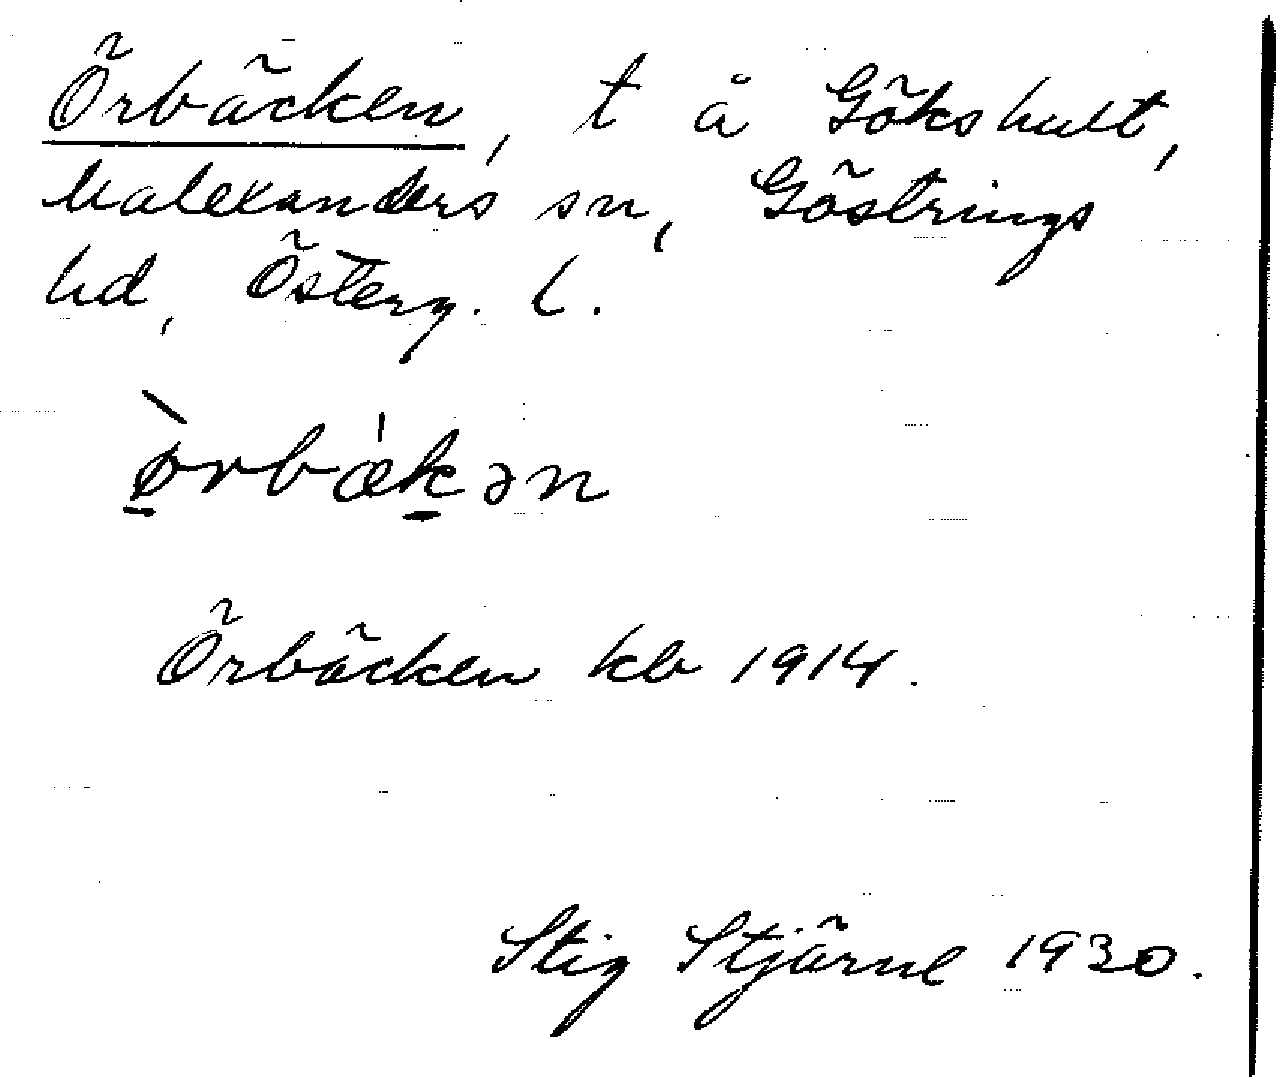 Örbäcken, t å Gökshult,
Malexanders sn, Göstrings
hd, Österg. l.
ø̲̀rbæ̍k̲ən
Örbäcken kb 1914.
Stig Stjärne 1930.